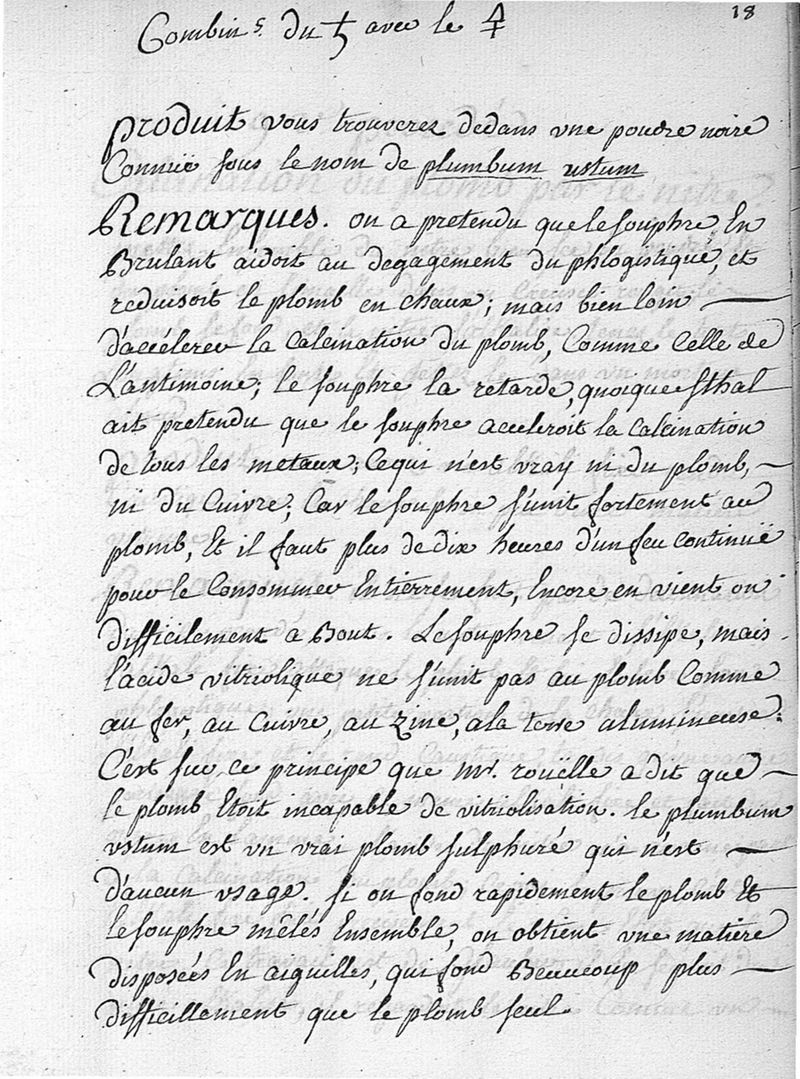 18
Combin.s du ♄ avec le 🜍
produit vous trouverez dedans vne poudre noire
Connüe sous le nom de plumbum ustum
Remarques. on a pretendu que le souphre, En
Brulant aidoit au degagement du phlogistique, et
reduisoit le plomb en chaux; mais bien loin —
d'accelerer la calcination du plomb, Comme Celle de
L'antimoine; le souphre la retarde, quoique sthal
ait pretendu que le souphre acceleroit la calcination
de tous les metaux; Cequi n'est vray ni du plomb, —
ni du Cuivre; Car le souphre s'unit fortement au
plomb, Et il faut plus de dix heures d'un feu continuë
pour le Consommer Entierrement, Encore en vient on
difficilement a Bout. Le souphre se dissipe, mais
l'acide vitriolique ne s'unit pas au plomb Comme
au fer, au Cuivre, au zinc, ala terre alumineuse.
C'est sur ce principe que mr. rouëlle a dit que —
le plomb Etoit incapable de vitriolisation. le plumbum
vstum est vn vrai plomb sulphuré qui n'est —
d'aucun vsage. si on fond rapidement le plomb Et
le souphre mêlés Ensemble, on obtient vne matiere
disposées En aiguilles, qui fond Beaucoup plus —
difficillement que le plomb seul.